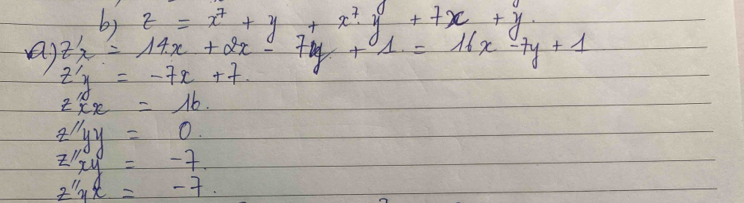 b) z = x⁷ + y + x⁷. y + 7x + y.
a) z'x = 14x + 2x - 7y + 1 = 16x -7y + 1
z'y = -7x + 7.
z''xx = 16.
z''yy = 0.
z''xy = -7
z''yx = -7.